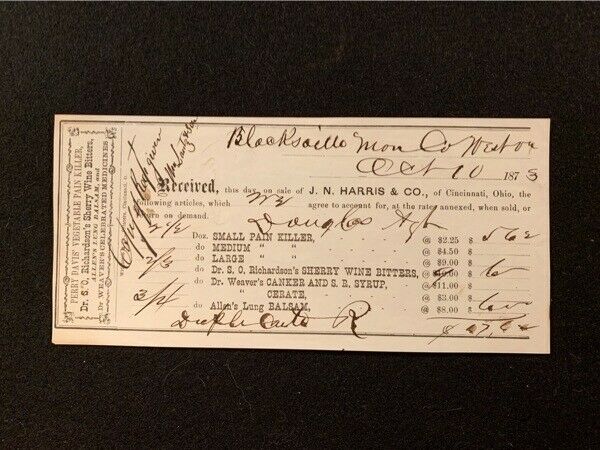 PERRY DAVIS' VEGETABLE PAIN KILLER,
Dr. S. O. Richardson's Sherry Wine Bitters,
ALLEN'S LUNG BALSAM, and
Dr WEAVER'S CELEBRATED MEDICINES
Blacksville Mon Co West Va
Oct 10 1873
Received, this day, on sale of J. N. HARRIS & CO., of Cincinnati, Ohio, the
following articles, We agree to account for, at the rates annexed, when sold, or
return on demand. Douglas Agt
2/2 Doz. SMALL PAIN KILLER, @ $2.25 $ 5 62
do MEDIUM " " @ $4.50 $
do LARGE " " @ $9.00 $
2/3 do Dr. S. O. Richardson's SHERRY WINE BITTERS, @ $ 6
do Dr. Weaver's CANKER AND S. R. SYRUP, @ $11.00 $
" CERATE, @ $3.00 $
3/4 do Allen's Lung BALSAM, @ $8.00 $ 6 00
Duplicate R $